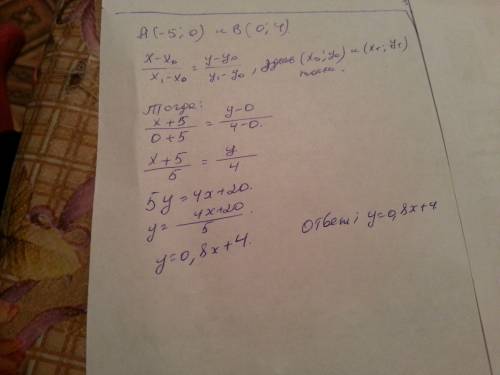 A(-5; 0) и B(0; 4)
x-x₀/x₁-x₀ = y-y₀/y₁-y₀, где (x₀; y₀) и (x₁; y₁)
точки.
Тогда:
x+5/0+5 = y-0/4-0.
x+5/5 = y/4
5y=4x+20.
y=4x+20/5.
y=0,8x+4.
Ответ: y=0,8x+4